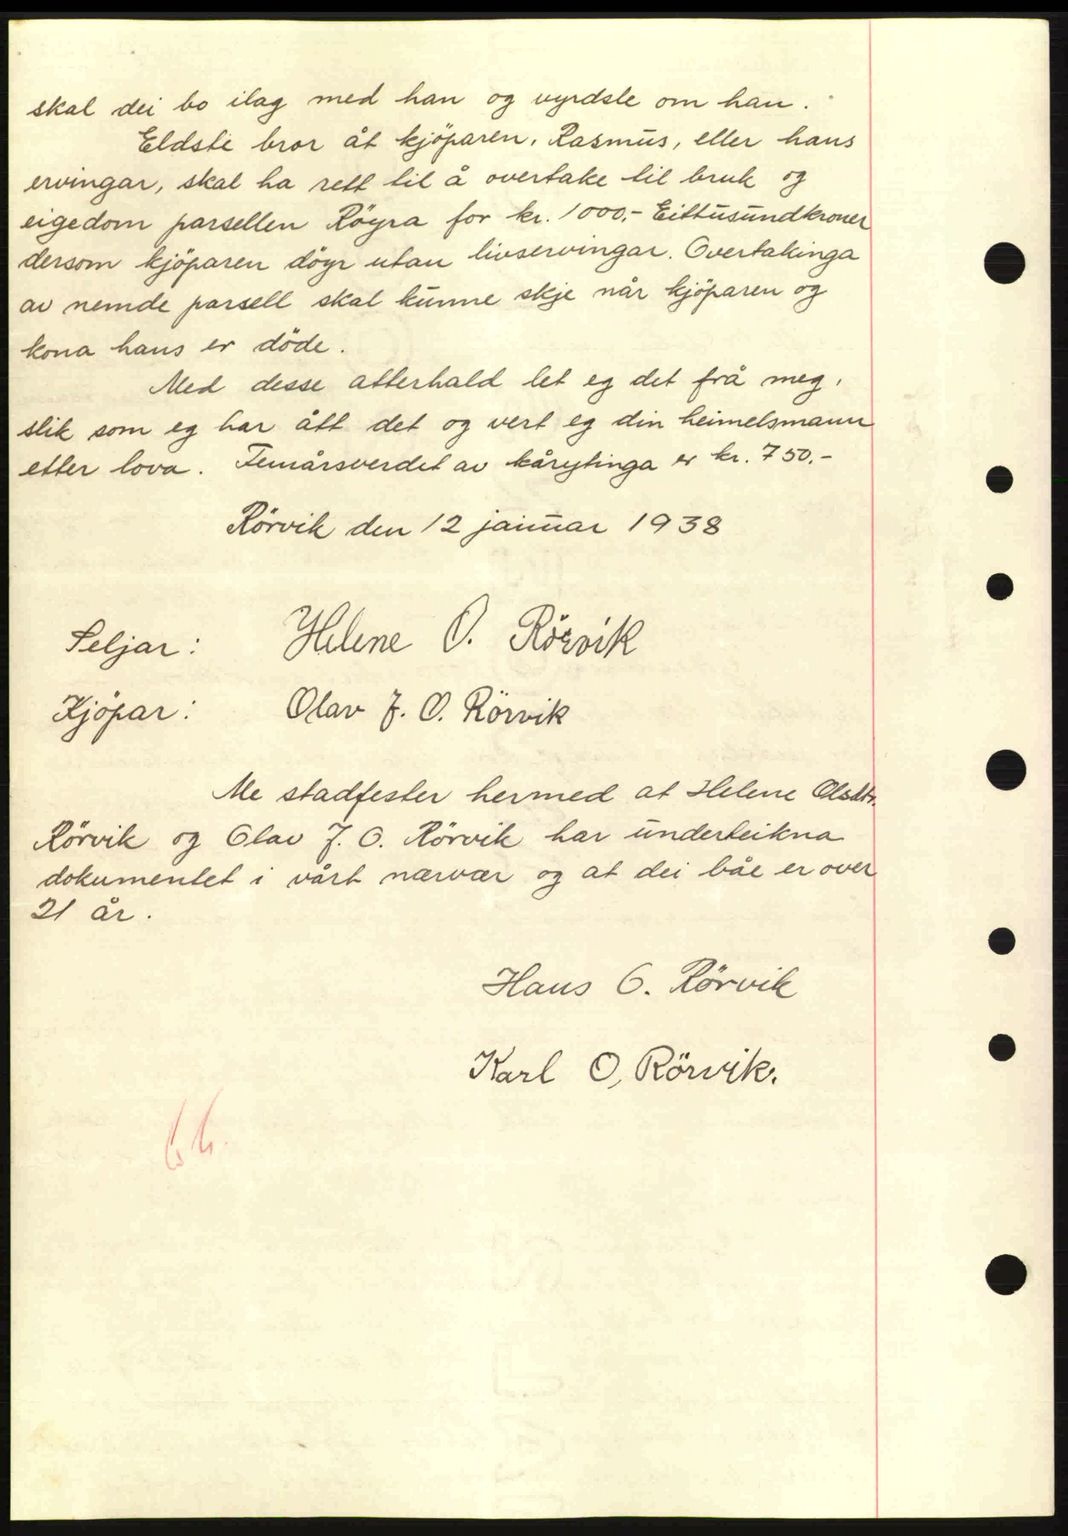 skal dei bo ilag med han og vyrdsle om han.
Eldste bror åt kjöparen, Rasmus, eller hans
ervingar, skal ha rett til å overtake til bruk og
eigedom parsellen Röyra for kr. 1000.- Eittusundkroner
dersom kjöparen döyr utan livservingar. Overtakinga
av nemde parsell skal kunne skje når kjöparen og
kona hans er döde.
Med desse atterhald let eg det frå meg,
slik som eg har ått det og vert eg din heimelsmann
etter lova. Femårsverdet av kårytinga er kr. 750.-
Rörvik den 12 januar 1938
Seljar: Helene O. Rörvik
Kjöpar: Olav J. O. Rörvik
Me stadfester hermed at Helene Olsdtr.
Rörvik og Olav J. O. Rörvik har underteikna
dokumentet i vårt nærvær og at dei båe er over
21 år.
Hans O. Rörvik
Karl O, Rörvik.